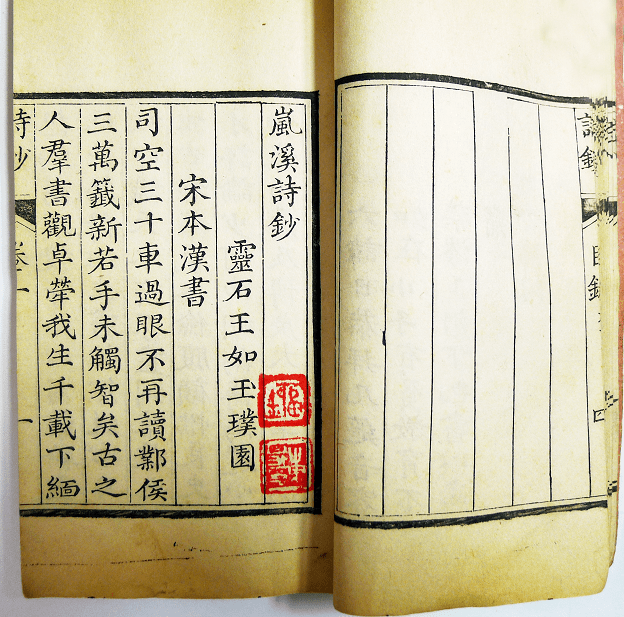 詩鈔
目錄
嵐溪詩鈔
靈石王如玉璞園
宋本漢書
司空三十車過眼不再讀鄴侯
三萬籤新若手未觸智矣古之
人羣書觀卓犖我生千載下緬
詩鈔
一